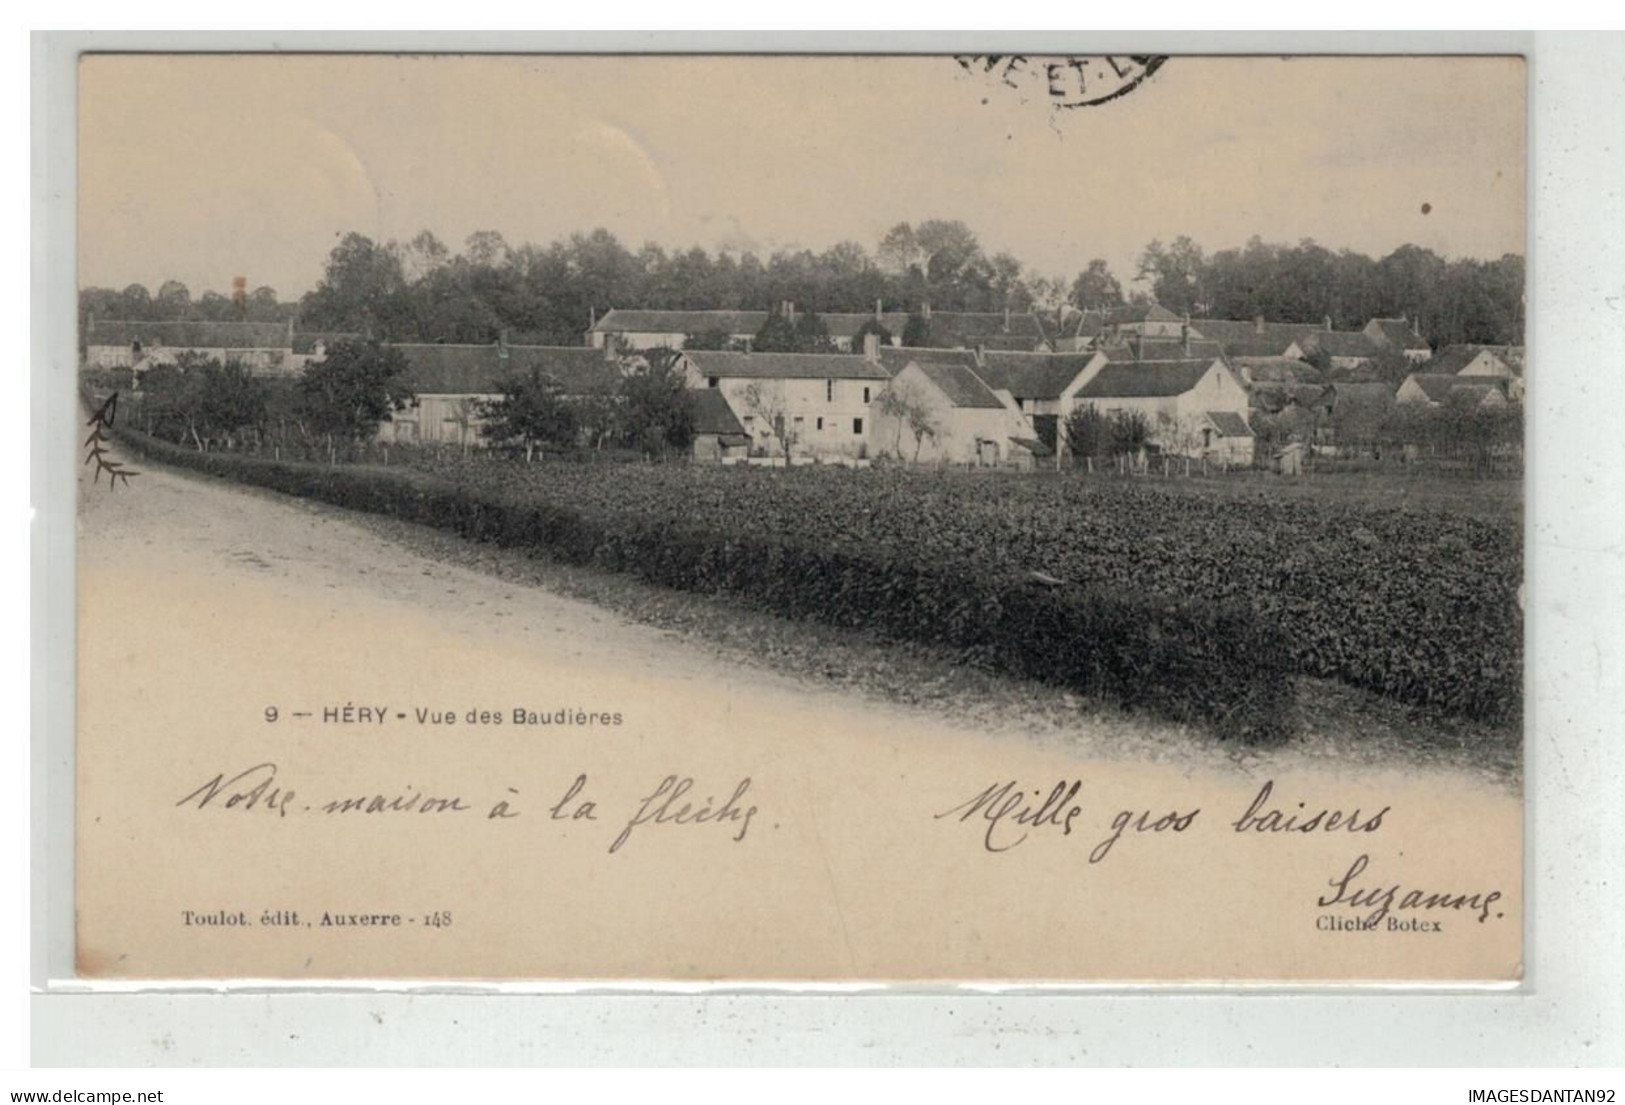 NE-ET-L
9 — HÉRY - Vue des Baudières
Notre maison à la flèche.
Mille gros baisers
Suzanne.
Toulot. édit., Auxerre - 148
Cliché Botex
www.delcampe.net
IMAGESDANTAN92